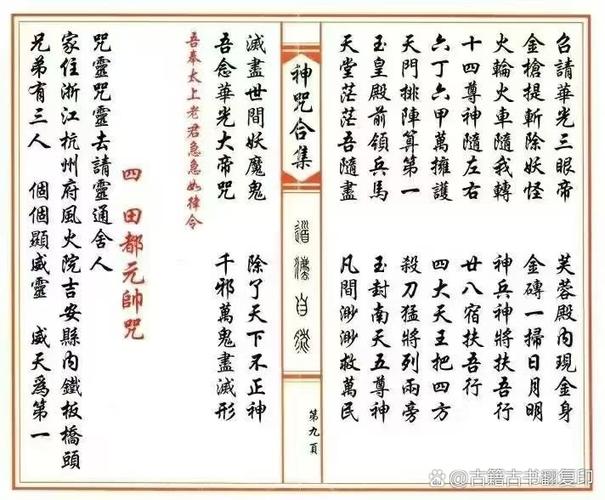 召請華光三眼帝　芙蓉殿內現金身
金槍提斬除妖怪　金磚一掃日月明
火輪火車隨我轉　神兵神將扶吾行
十四尊神隨左右　廿八宿扶吾行
六丁六甲萬擁護　四大天王把四方
天門排陣算第一　殺刀猛將列兩旁
玉皇殿前領兵馬　玉封南天五尊神
天堂茫茫吾隨盡　凡間渺渺救萬民
神咒合集
道法自然
第九頁
滅盡世間妖魔鬼　除了天下不正神
吾念華光大帝咒　千邪萬鬼盡滅形
吾奉太上老君急急如律令
四　田都元帥咒
咒靈咒靈去請靈通舍人
家住浙江杭州府風火院吉安縣內鐵板橋頭
兄弟有三人　個個顯威靈　威天為第一
古籍古书翻复印